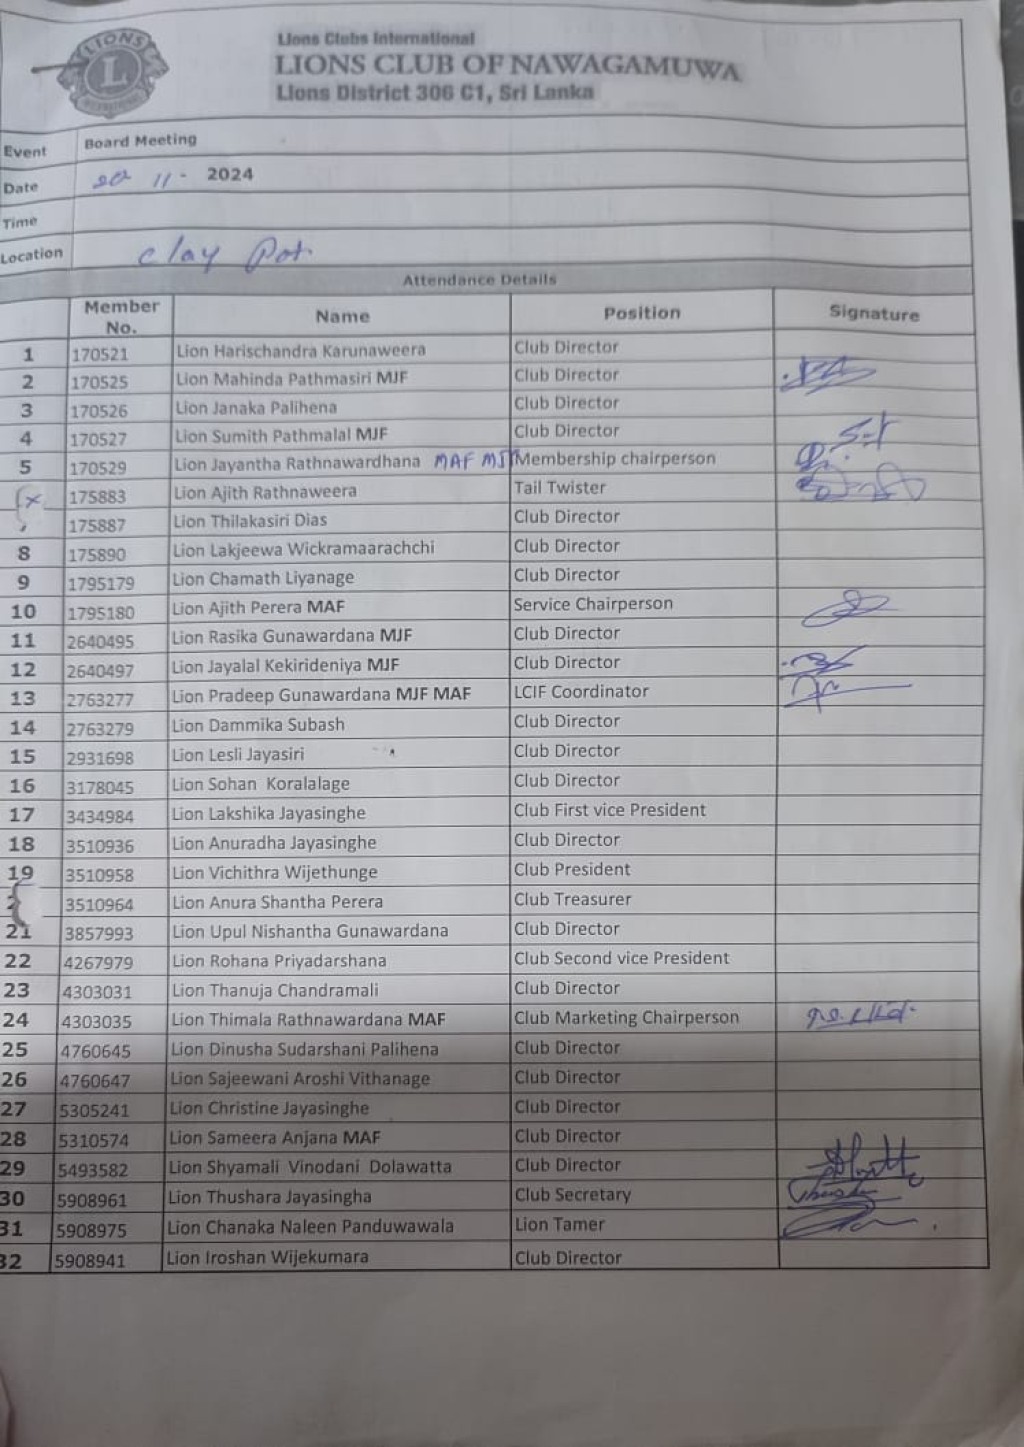 LIONS
L
INTERNATIONAL
Lions Clubs International
LIONS CLUB OF NAWAGAMUWA
Lions District 306 C1, Sri Lanka
Event Board Meeting
Date 20 11 - 2024
Time
Location Clay Pot
Attendance Details
Member No. Name Position Signature
1 170521 Lion Harischandra Karunaweera Club Director
2 170525 Lion Mahinda Pathmasiri MJF Club Director
3 170526 Lion Janaka Palihena Club Director
4 170527 Lion Sumith Pathmalal MJF Club Director
5 170529 Lion Jayantha Rathnawardhana MAF MJ Membership chairperson
175883 Lion Ajith Rathnaweera Tail Twister
175887 Lion Thilakasiri Dias Club Director
8 175890 Lion Lakjeewa Wickramaarachchi Club Director
9 1795179 Lion Chamath Liyanage Club Director
10 1795180 Lion Ajith Perera MAF Service Chairperson
11 2640495 Lion Rasika Gunawardana MJF Club Director
12 2640497 Lion Jayalal Kekirideniya MJF Club Director
13 2763277 Lion Pradeep Gunawardana MJF MAF LCIF Coordinator
14 2763279 Lion Dammika Subash Club Director
15 2931698 Lion Lesli Jayasiri Club Director
16 3178045 Lion Sohan Koralalage Club Director
17 3434984 Lion Lakshika Jayasinghe Club First vice President
18 3510936 Lion Anuradha Jayasinghe Club Director
19 3510958 Lion Vichithra Wijethunge Club President
3510964 Lion Anura Shantha Perera Club Treasurer
21 3857993 Lion Upul Nishantha Gunawardana Club Director
22 4267979 Lion Rohana Priyadarshana Club Second vice President
23 4303031 Lion Thanuja Chandramali Club Director
24 4303035 Lion Thimala Rathnawardana MAF Club Marketing Chairperson
25 4760645 Lion Dinusha Sudarshani Palihena Club Director
26 4760647 Lion Sajeewani Aroshi Vithanage Club Director
27 5305241 Lion Christine Jayasinghe Club Director
28 5310574 Lion Sameera Anjana MAF Club Director
29 5493582 Lion Shyamali Vinodani Dolawatta Club Director
30 5908961 Lion Thushara Jayasingha Club Secretary
31 5908975 Lion Chanaka Naleen Panduwawala Lion Tamer
32 5908941 Lion Iroshan Wijekumara Club Director